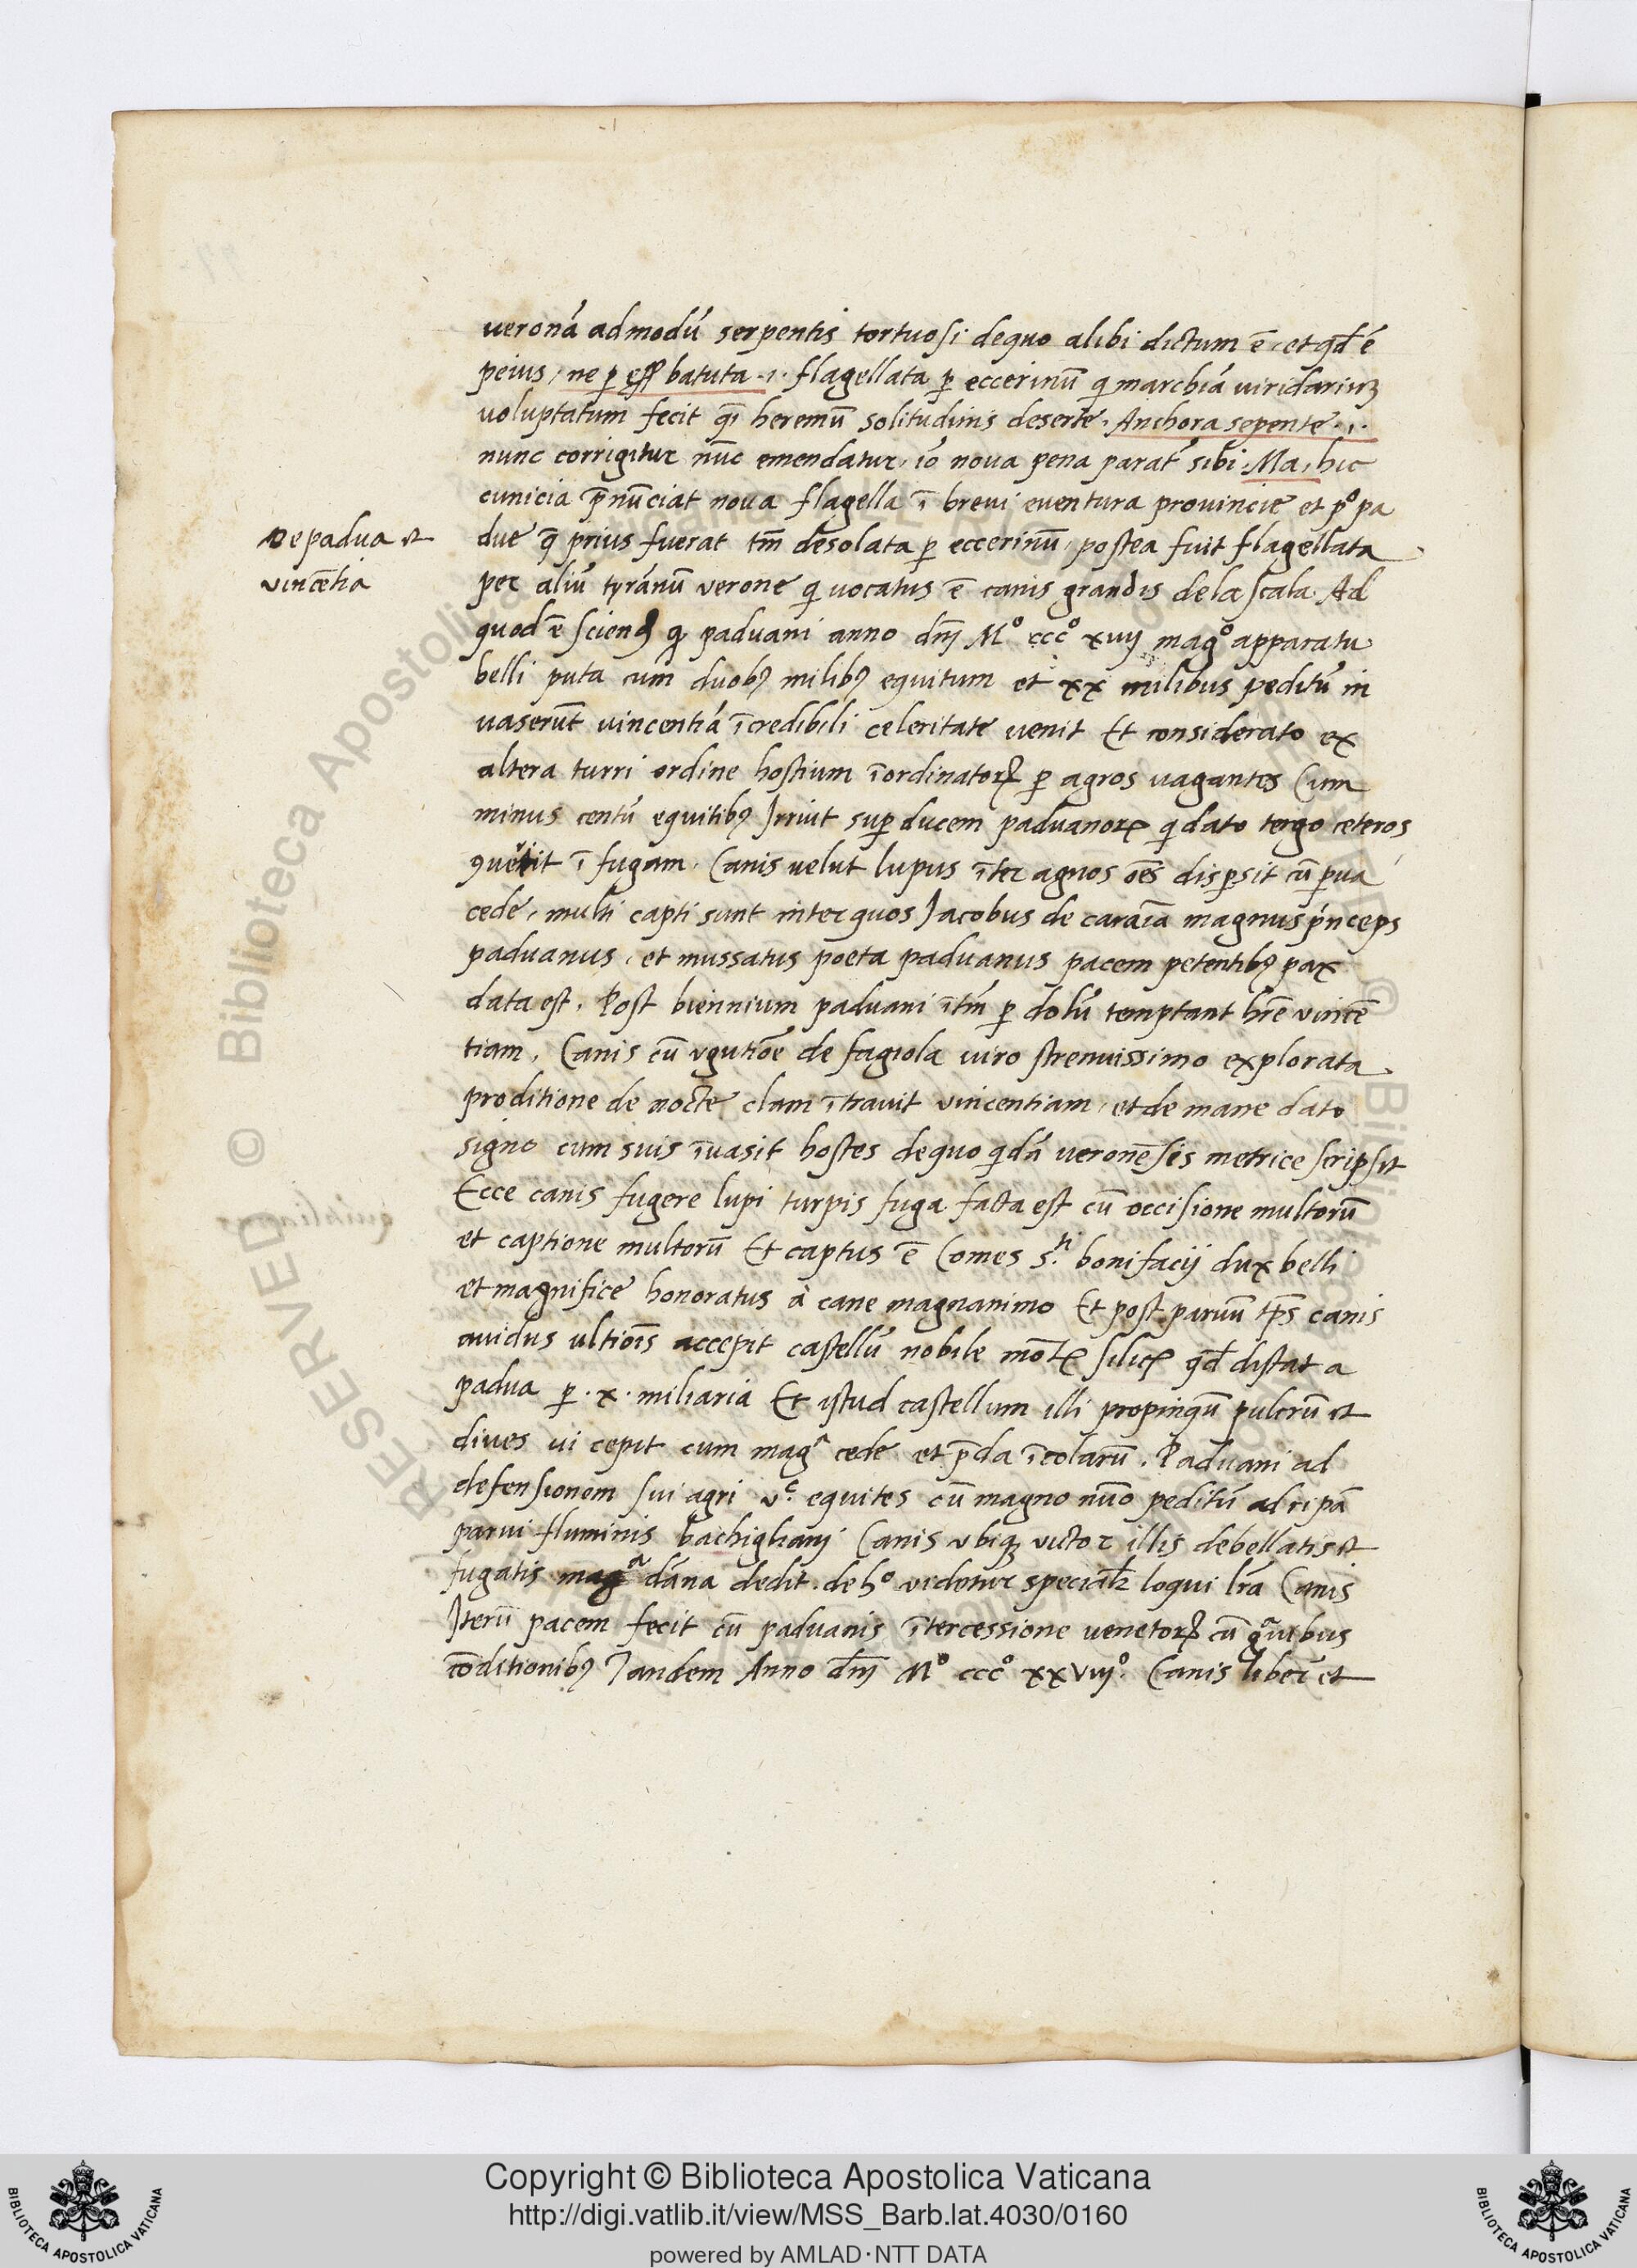 veronā ad modū serpentis tortuosi de quo alibi dictum ē. et qd̄ ē
peius, ne p̱ batuta .i. flagellata p̱ eccerinū q marchiā viridariuȝ
voluptatum fecit q̄i heremū solitudinis deserte. Anchora sepente .i.
nunc corrigitur nūc emendatur, iō nova pena parat᷒ sibi. Ma, hic
cunicia p̄nūciat nova flagella ī brevi eventura provincie et pº pa
De padua et
vincētia
due q̄ prius fuerat tm̄ desolata p̱ eccerinū, postea fuit flagellata
per aliū tyrānū verone q vocatus ē canis grandis de la scala. Ad
quod ē sciend ꝙ paduani anno dnī Mº cccº xiiij magº apparatu
belli puta cum duobꝰ milibꝰ equitum et xx milibus peditū in
vaserūt vincentiā īcredibili celeritate venit Et considerato ex
altera turri ordine hostium īordinatoꝝ p̱ agros vagantes Cum
minus centū equitibꝰ Irruit sup̱ ducem paduanoꝝ q dato tergo ceteros
ꝯvertit ī fugam. Canis velut lupus īter agnos oēs disp̱sit cū p̱va
cede, multi capti sunt inter quos Jacobus de cararia magnus pⁱnceps
paduanus, et mussatus poeta paduanus pacem petentibꝰ pax
data est. Post biennium paduani itm̄ p̱ dolū temptant hr̄e vincē
tiam. Canis cū ugutiōe de fagiola viro strenuissimo explorata
proditione de nocte clam ītravit vincentiam, et de mane dato
signo cum suis īvasit hostes de quo qdā veronēses metrice scripsit
Ecce canis fugere lupi turpis fuga facta est cū occisione multorū
et captione multorū Et captus ē Comes s.ti bonifacij dux belli
et magnifice honoratus à cane magnanimo Et post parvū tp̄s canis
avidus ultiōis accepit castellū nobile mōtꝭ silicꝭ qd̄ distat a
padua p̱ .x. miliaria Et istud castellum illi propinqū pulcrū et
dives vi cepit cum magª cede et p̄da īcolarū. Paduani ad
defensionem sui agri v.c equites cū magno nūo peditū ad ripā
parvi fluminis bachiglianj Canis ubiqȝ victor illis debellatis et
fugatis magª dāna dedit. de hº videtur specialr̄ loqui lr̄a Canis
Iterū pacem fecit cū paduanis ītercessione venetoꝝ cū gªvibus
cōditionibꝰ Tandem Anno dnī Mº cccº xxviijº. Canis liber et
Copyright © Biblioteca Apostolica Vaticana
http://digi.vatlib.it/view/MSS_Barb.lat.4030/0160
powered by AMLAD·NTT DATA
BIBLIOTECA APOSTOLICA VATICANA
BIBLIOTECA APOSTOLICA VATICANA